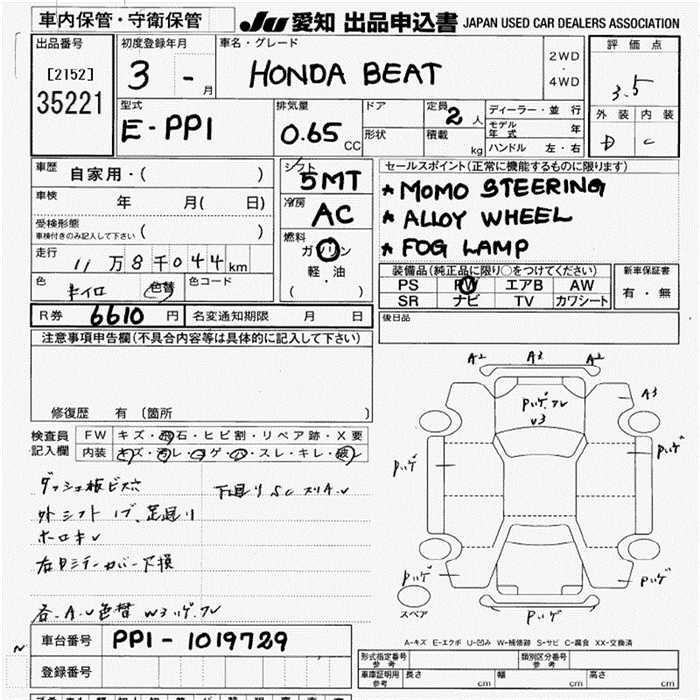 車内保管・守衛保管
JU 愛知 出品申込書 JAPAN USED CAR DEALERS ASSOCIATION
出品番号
[2152]
35221
初度登録年月
3 - 月
車名・グレード
HONDA BEAT
2WD
・
4WD
評価点
3.5
外装 内装
D C
型式
E-PP1
排気量
0.65 CC
ドア
形状
定員 2 人
積載 kg
ディーラー・並行
モデル年式 年
ハンドル 左・右
車歴 自家用・( )
車検 年 月( 日)
受検形態
車検付きのみ記入して下さい ( )
走行 11万8千044km
色 キイロ 色替 色コード
シフト
5MT
冷房
AC
燃料
ガソリン
軽・油
( ・ )
セールスポイント(正常に機能するものに限ります)
* MOMO STEERING
* ALLOY WHEEL
* FOG LAMP
装備品(純正品に限り○をつけてください)
PS PW エアB AW
SR ナビ TV カワシート
新車保証書
有・無
R券 6610 円 名変通知期限 月 日
後日品
注意事項申告欄(不具合内容等は具体的に記入して下さい)
修復歴 有 〔箇所 〕
検査員記入欄
FW キズ・飛石・ヒビ割・リペア跡・X要
内装 キズ・汚レ・コゲ・穴・スレ・キレ・破レ
ダッシュ板ビス穴 下廻りSCスリA.U
外シフトノブ、足廻り
ホーロキレ
右サイデーカバー下損
各-A.U色替 W3ハゲ.フレ
A2 A3 A2
A3
Pハゲ.フレ
W3
Pハゲ
Pハゲ
Pハゲ
Pハゲ
Pハゲ
スペア
A-キズ E-エクボ U-凹み W-補修跡 S-サビ C-腐食 XX-交換済
車台番号 PP1-1019729
登録番号
形式指定番号 参考
類別区分番号 参考
車庫証明用 参考 長さ cm 幅 cm 高さ cm